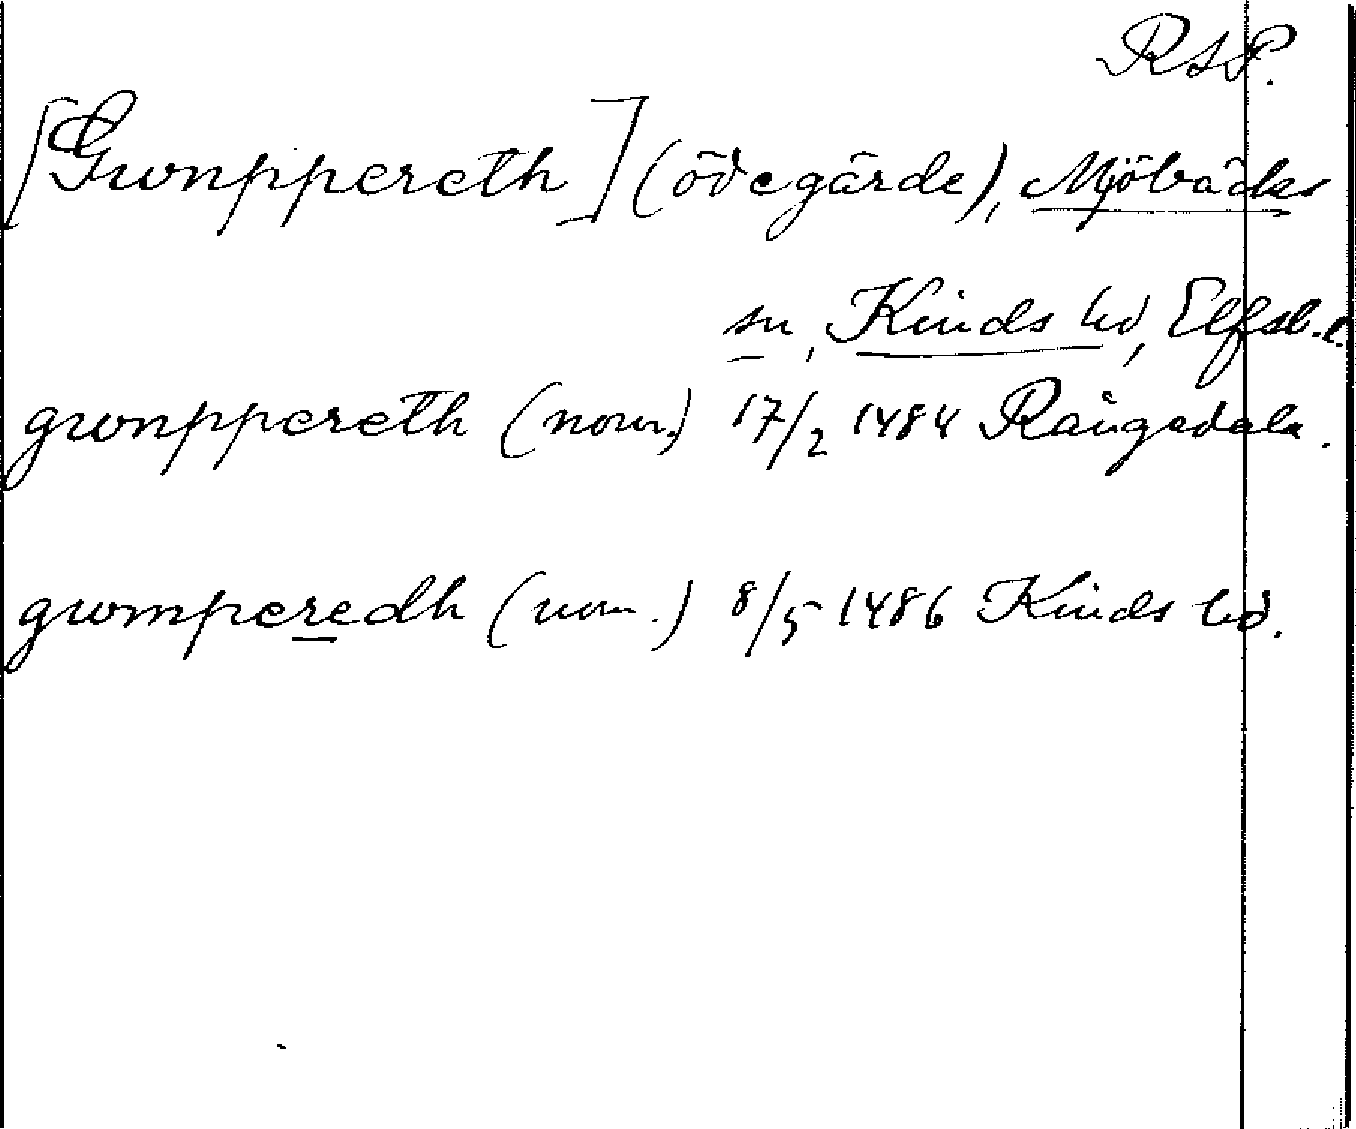 RAP.
[Gwnppereth] (ödegärde), Mjöbäcks
sn, Kinds hd, Elfsb. l.
gwnppereth (nom.) 17/2 1484 Rångedala.
gwmperedh (nom.) 8/5 1486 Kinds hd.